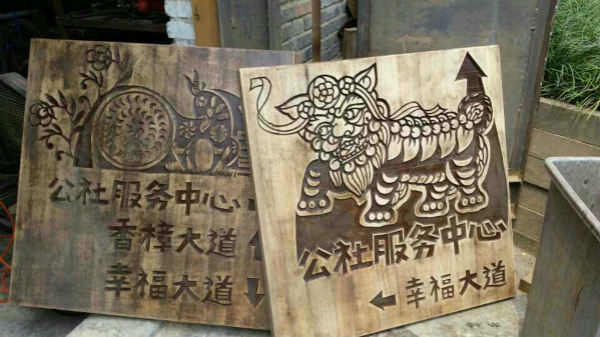 公社服务中心
香樟大道
幸福大道
公社服务中心
幸福大道